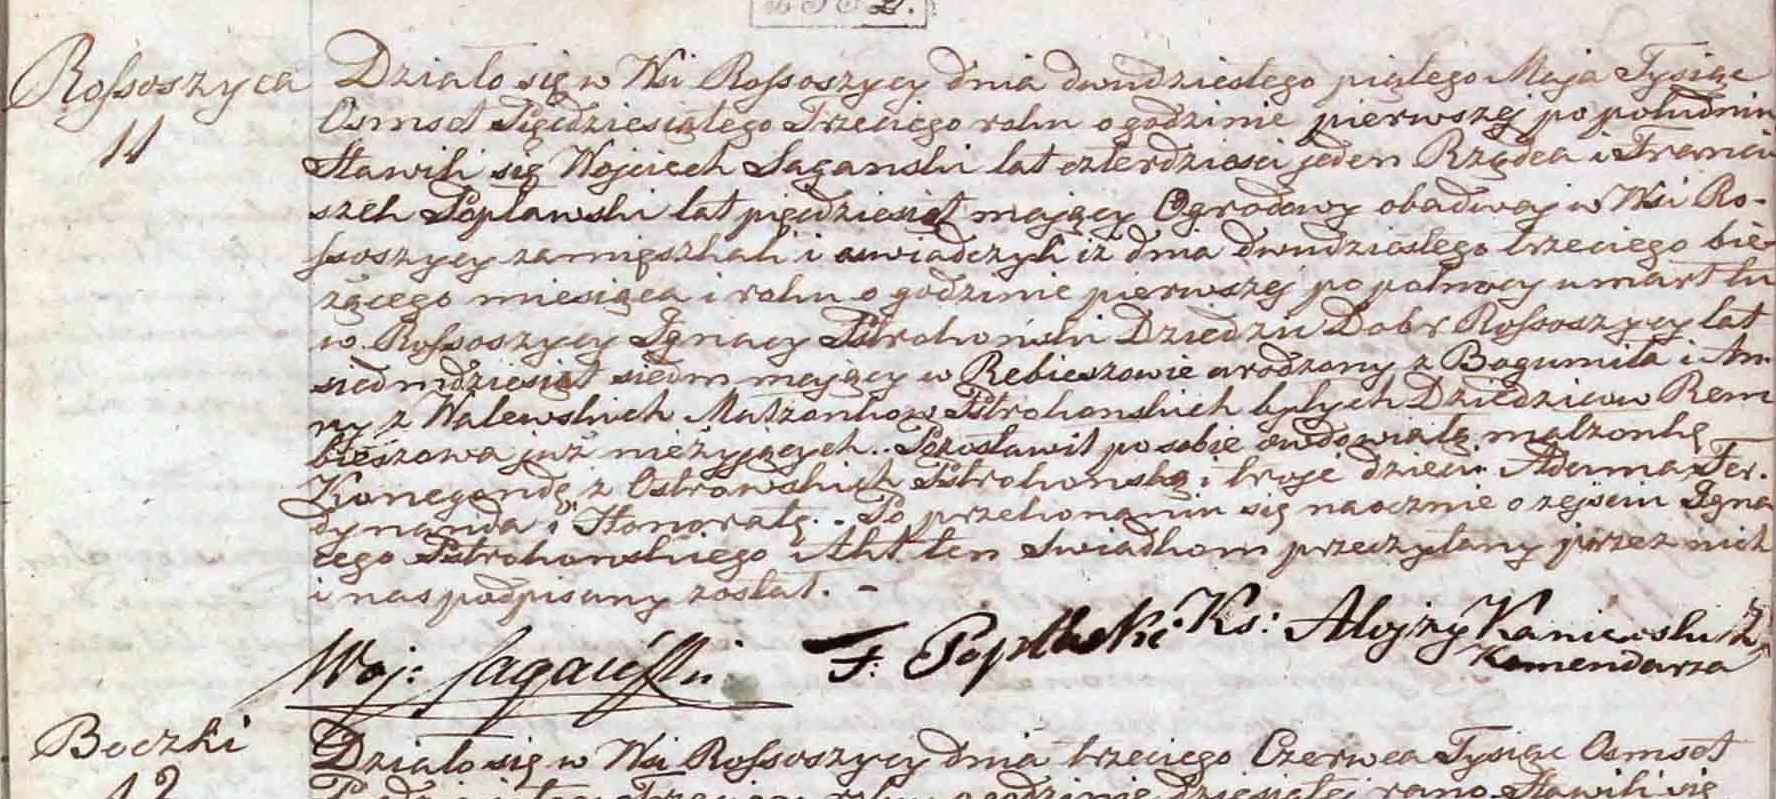 Rossoszyca
11
Działo się w Wsi Rossoszycy dnia dwudziestego piątego Maja Tysiąc
Osmset Pięćdziesiątego Trzeciego roku o godzinie pierwszej po południu
Stawili się Wojciech Sagański lat czterdzieści jeden Rządca i Franci
szek Popławski lat pięćdziesiąt mający Ogrodowy obadwaj w Wsi Ro-
ssoszycy zamięszkali i oswiadczyli iż dnia dwudziestego trzeciego bie-
żącego miesiąca i roku o godzinie pierwszej po połnocy umarł tu
w Rossoszycy Ignacy Pstrokoński Dziedzic Dobr Rossoszycy lat
siedmdziesiąt siedm mający w Rebieszowie urodzony z Bogumiła i An-
ny z Walewskich Małżonkow Pstrokonskich byłych Dziedzicow Rem
bieszowa już nieżyjących. Pozostawił po sobie owdowiałą małżonkę
Konegondę z Ostrowskich Pstrokonską i troje dzieci Adama Fer-
dynanda i Honoratę. - Po przekonaniu się naocznie o zejściu Igna
cego Pstrokonskiego Akt ten Swiadkom przeczytany przez nich
i nas podpisany został. -
Woj: Sagański F. Popławski Ks: Aloizy Kaniewski
Komendarza
Boczki
12
Działo się w Wsi Rossoszycy dnia trzeciego Czerwca Tysiąc Osmset
Pięćdziesiątego Trzeciego roku o godzinie dziesiątej rano Stawili się